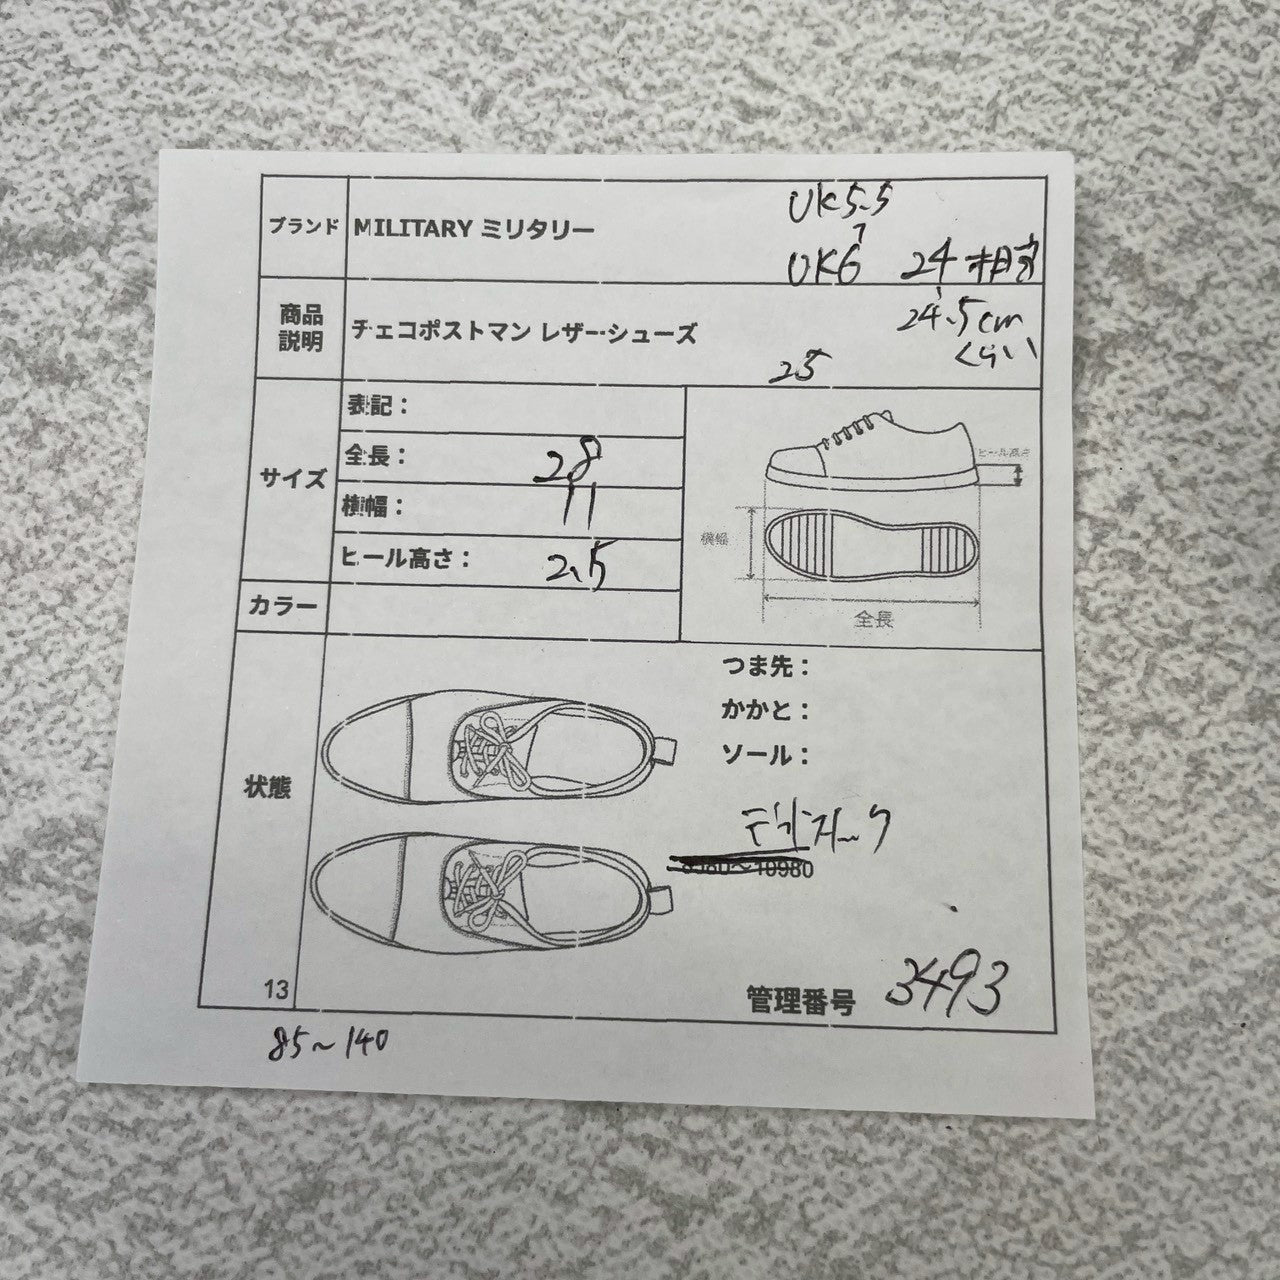 ブランド MILITARY ミリタリー UK5.5
UK6 24 相当
商品説明 チェコポストマン レザーシューズ 24.5cm
くらい
25
サイズ
表記：
全長： 28
横幅： 11
ヒール高さ： 2.5
ヒール高さ
横幅
全長
カラー
状態
つま先：
かかと：
ソール：
デッドストック
10980
13
管理番号 3493
85～140